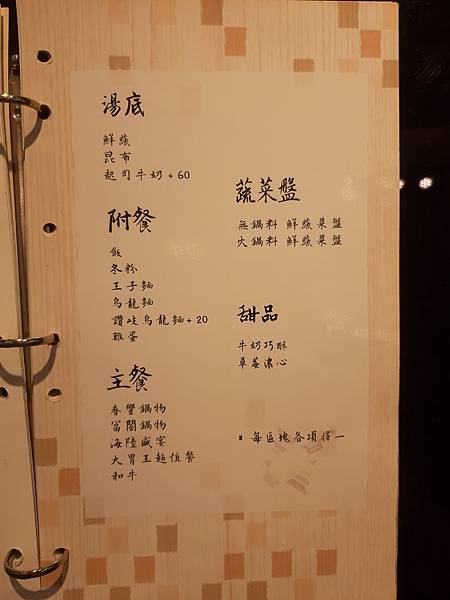 湯底
鮮蔬
昆布
起司牛奶+60
附餐
飯
冬粉
王子麵
烏龍麵
讚岐烏龍麵+20
雞蛋
主餐
春豐鍋物
富閣鍋物
海陸盛宴
大胃王超值餐
和牛
蔬菜盤
無鍋料 鮮蔬菜盤
火鍋料 鮮蔬菜盤
甜品
牛奶巧酥
草莓濃心
※ 每區塊各項擇一